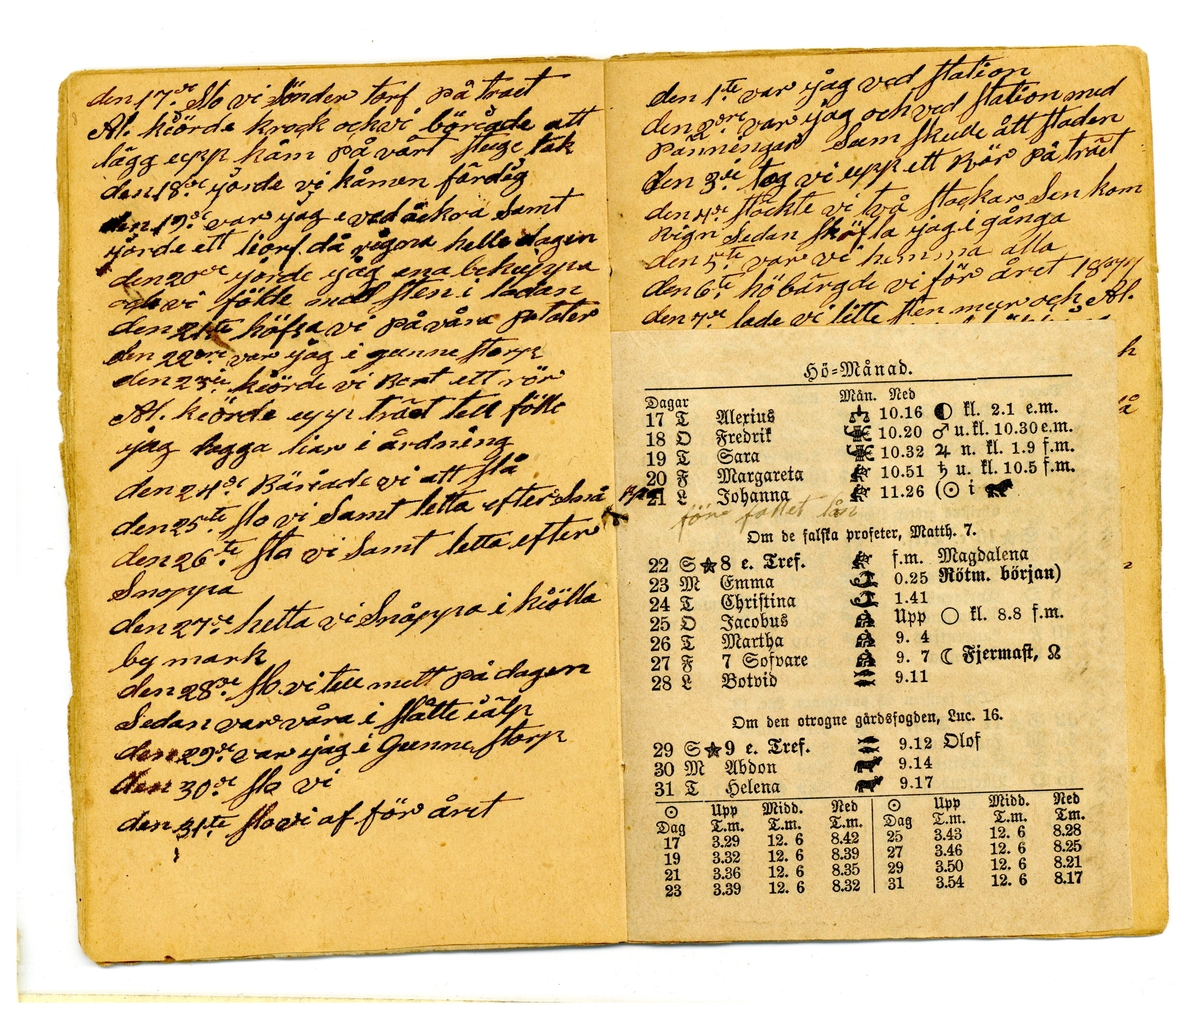 den 17de slo vi sönder torf på träet
Al. kiörde krock och vi börigde att
lägg upp häm på vårt stuge tak
den 18de yörde vi håmen färdig
den 19de var yag e ved åckra samt
yörde ett liorf. då regna hella dagen
den 20de yörde yag ena behuppa
och vi fölle med sten i ladan
den 21te höfsa vi på våra potater
den 22dre var yag i gunne storp
den 23de kiörde vi Bort ett rör
Al. kiörde upp träet tell fölle
yag legga liar i årdning
den 24de Bäriade vi att slå
den 25te slo vi Samt letta efter Snå
den 26te sla vi samt letta efter
Snoppa
den 27de hetta vi Snåppa i kiölla
by mark
den 28de slo vi tell mett på dagen
Sedan var våra i slåtte iälp
den 29de var yag i Gunne storp
den 30de sla vi
den 31te slo vi af för året
den 1te var yag ved station
den 2dre var yag och ved station med
pänningar Sam skude ått staden
den 3de tog vi upp ett Rör på träet
den 4de stäckte vi två stackar Sen kom
Rign Sedan skafla yag i gånga
den 5te var vi hemma alla
den 6te höbärgde vi för året
den 7de lade vi lite sten mur och Al.
Hö=Månad.
Dagar Mån. Ned
17 T Alexius 10.16 kl. 2.1 e.m.
18 O Fredrik 10.20 ♂ u. kl. 10.30 e.m.
19 T Sara 10.32 ♃ n. kl. 1.9 f.m.
20 F Margareta 10.51 ♄ u. kl. 10.5 f.m.
21 L Johanna 11.26 (☉ i
före fallet
Om de falska profeter, Matth. 7.
22 S ★ 8 e. Tref. f.m. Magdalena
23 M Emma 0.25 Rötm. början)
24 T Christina 1.41
25 O Jacobus Upp ○ kl. 8.8 f.m.
26 T Martha 9. 4
27 F 7 Sofvare 9. 7 ☾ Fjermast, ☊
28 L Botvid 9.11
Om den otrogne gårdsfogden, Luc. 16.
29 S ★ 9 e. Tref. 9.12 Olof
30 M Abdon 9.14
31 T Helena 9.17
☉ Upp Midd. Ned ☉ Upp Midd. Ned
Dag T.m. T.m. T.m. Dag T.m. T.m. Tm.
17 3.29 12. 6 8.42 25 3.43 12. 6 8.28
19 3.32 12. 6 8.39 27 3.46 12. 6 8.25
21 3.36 12. 6 8.35 29 3.50 12. 6 8.21
23 3.39 12. 6 8.32 31 3.54 12. 6 8.17